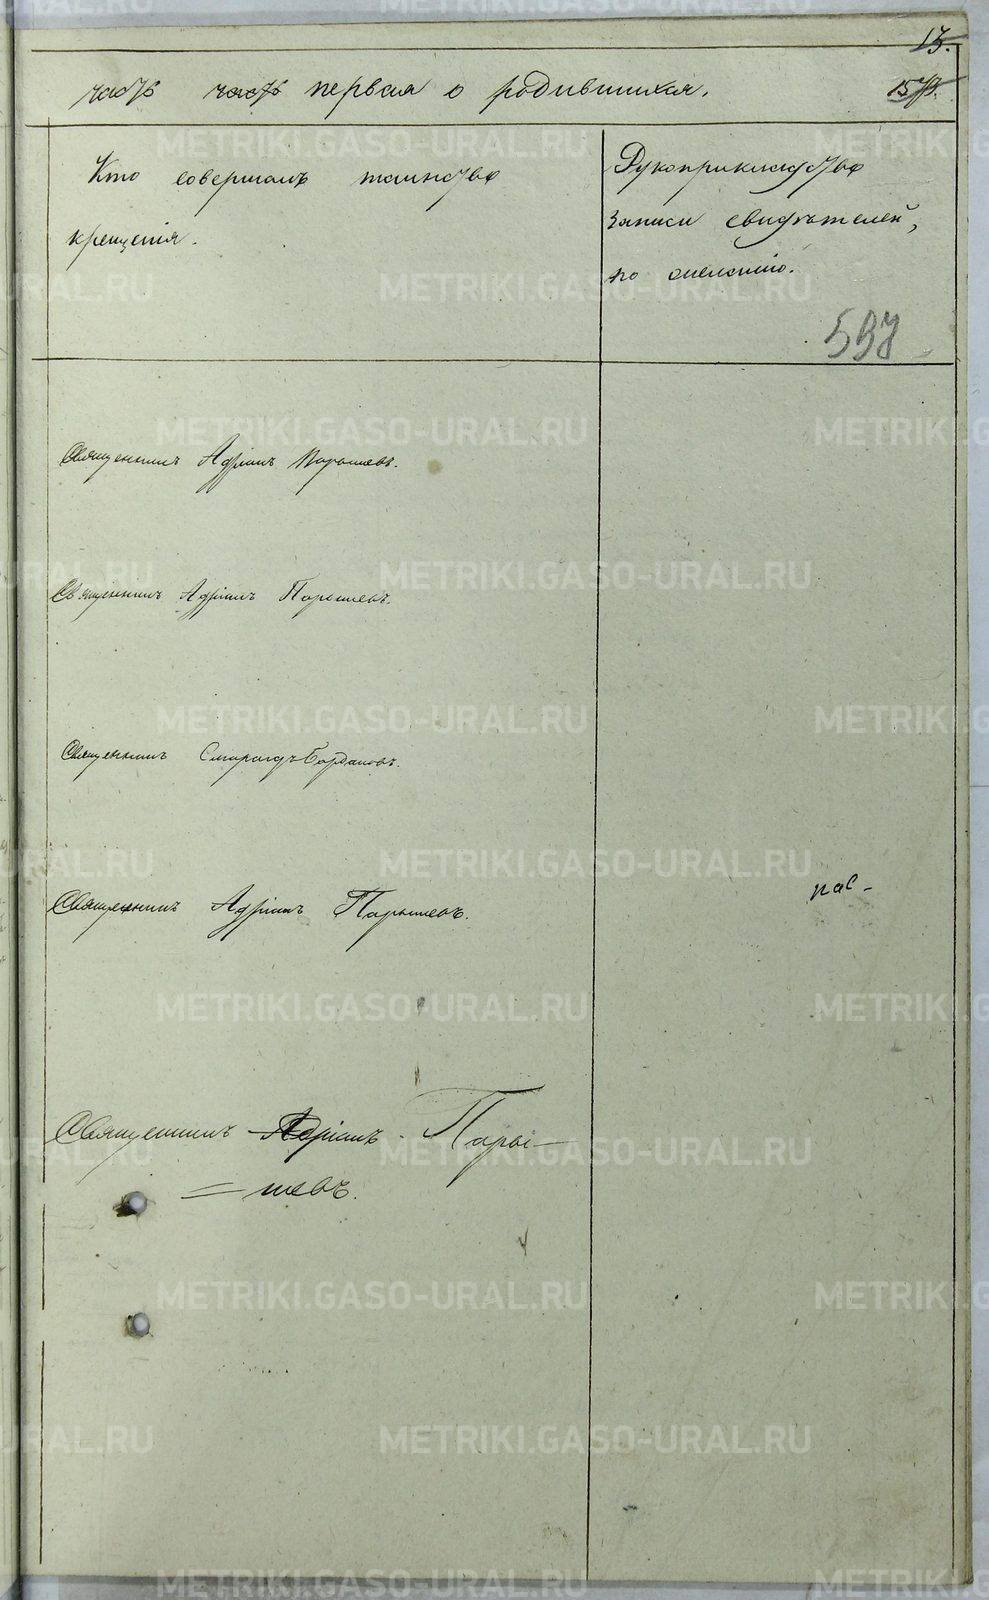 13.
часть часть первая о родившихся.
Кто совершалъ таинство
крещенія.
Рукоприкладство
записи свидѣтелей,
по желанію.
597
Священникъ Адріанъ Парышевъ.
Священникъ Адріанъ Парышевъ.
Священникъ Смарагдъ Богдановъ.
Священникъ Адріанъ Парышевъ.
Священникъ Адріанъ Пары-
=шевъ.
METRIKI.GASO-URAL.RU